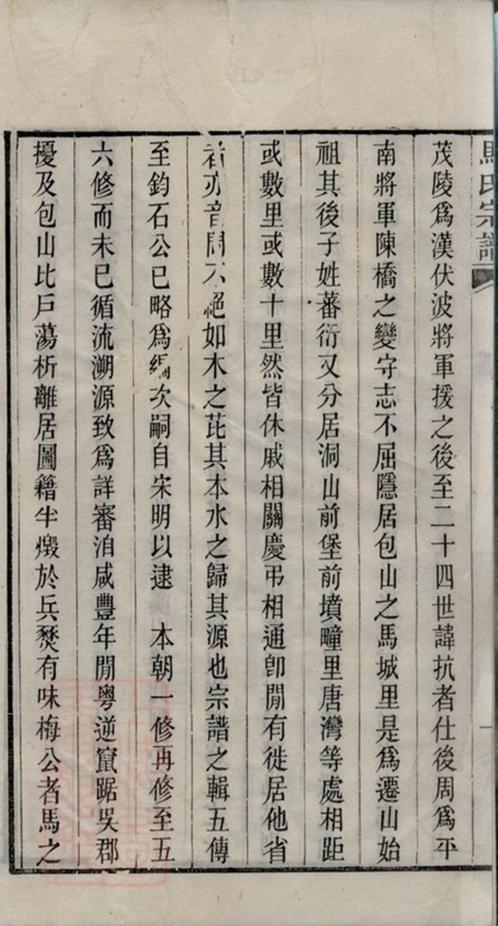 馬氏宗譜
茂陵爲漢伏波將軍援之後至二十四世諱抗者仕後周爲平
南將軍陳橋之變守志不屈隱居包山之馬城里是爲遷山始
祖其後子姓蕃衍又分居洞山前堡前墳疃里唐灣等處相距
或數里或數十里然皆休戚相關慶弔相通卽閒有徙居他省
者亦音問不絕如木之芘其本水之歸其源也宗譜之輯五傳
至鈞石公已略爲編次嗣自宋明以逮 本朝一修再修至五
六修而未已循流溯源致爲詳審洎咸豐年閒粵逆竄踞吳郡
擾及包山比戶蕩析離居圖籍半燬於兵燹有味梅公者馬之